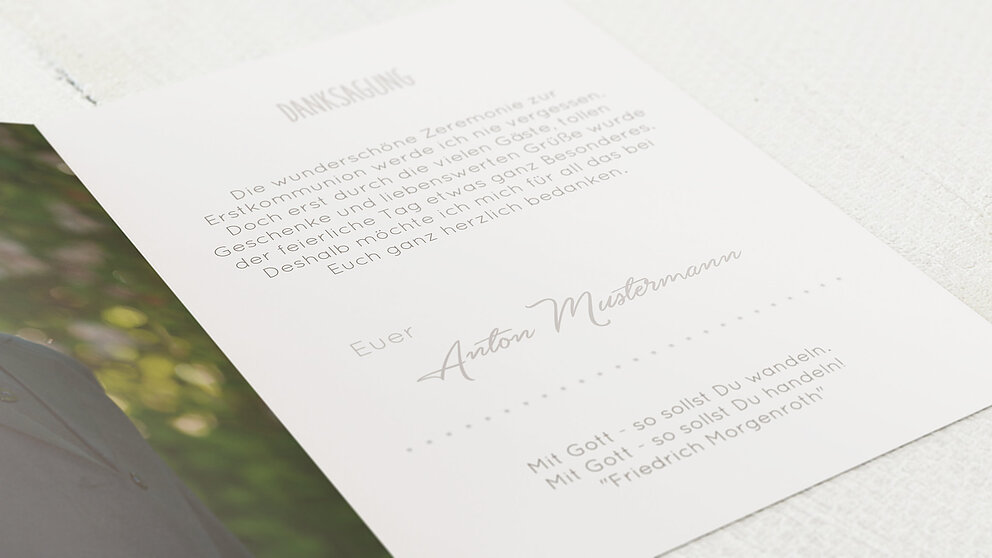 DANKSAGUNG
Die wunderschöne Zeremonie zur
Erstkommunion werde ich nie vergessen.
Doch erst durch die vielen Gäste, tollen
Geschenke und liebenswerten Grüße wurde
der feierliche Tag etwas ganz Besonderes.
Deshalb möchte ich mich für all das bei
Euch ganz herzlich bedanken.
Euer Anton Mustermann
Mit Gott - so sollst Du wandeln.
Mit Gott - so sollst Du handeln!
"Friedrich Morgenroth"